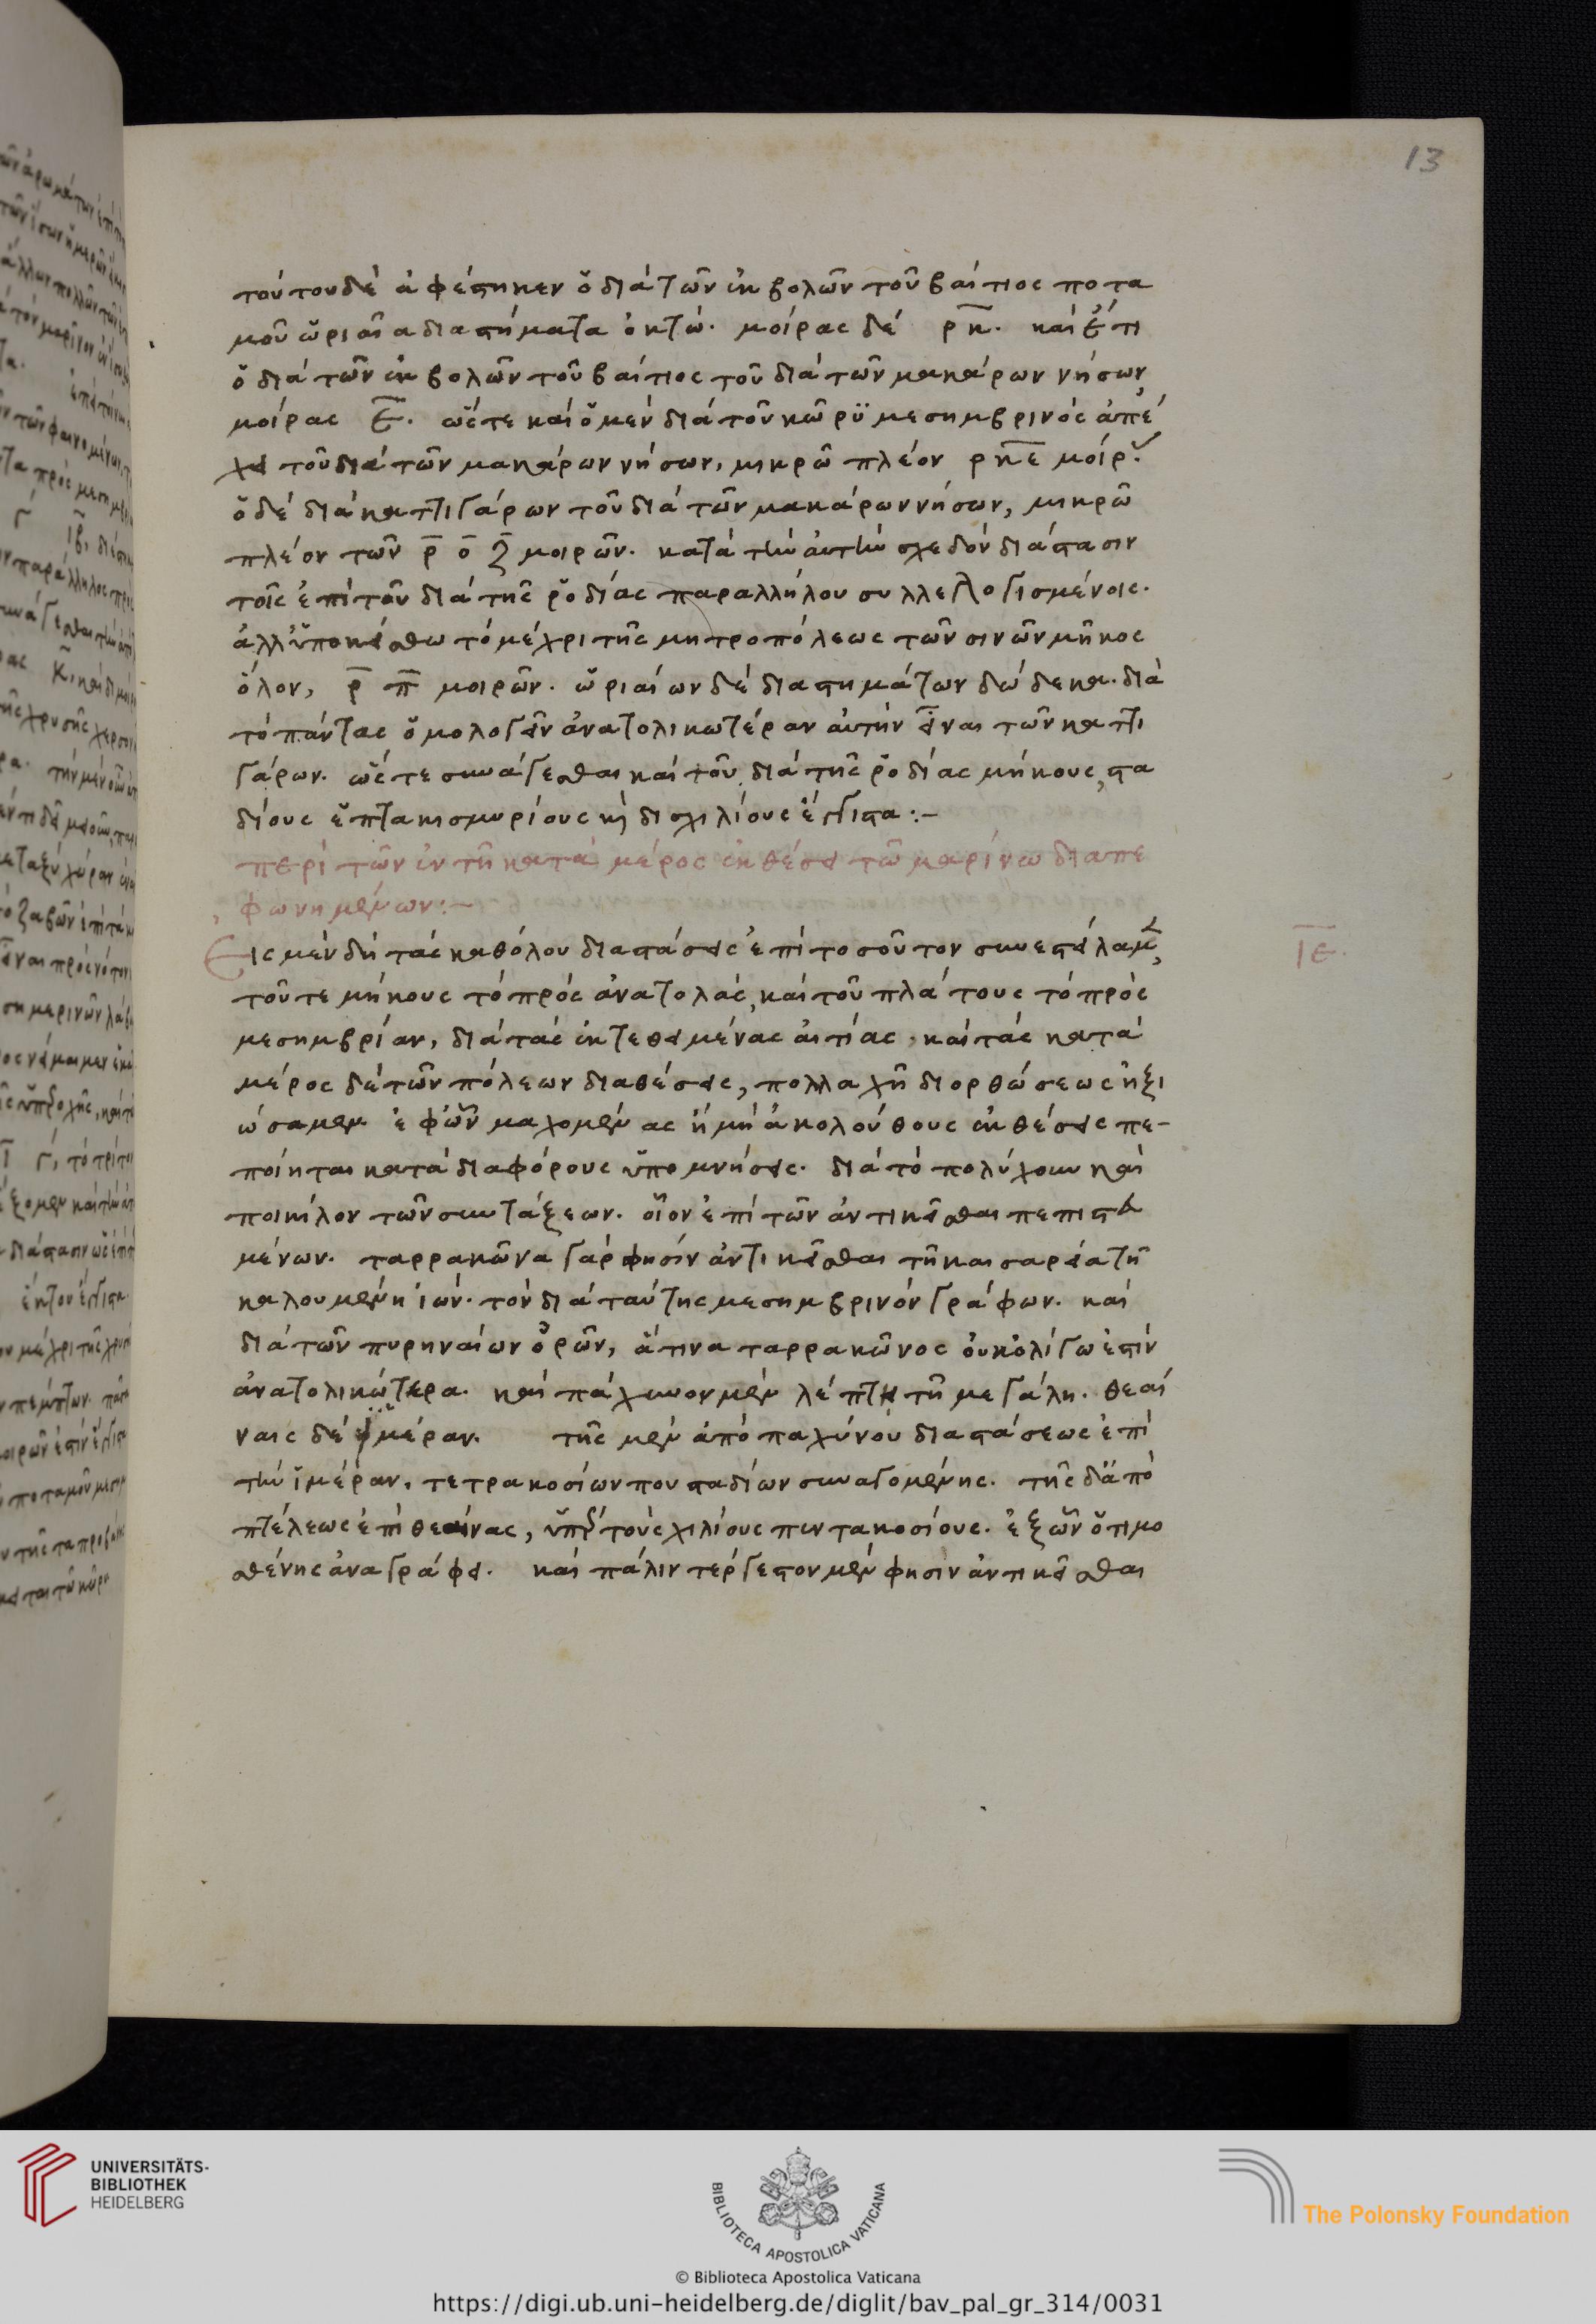 13
τούτου δὲ ἀφέστηκεν ὁ διὰ τῶν ἐκβολῶν τοῦ βαίτιος ποτα
μοῦ ὡριαῖα διαστήματα ὀκτώ. μοίρας δὲ ρκ. καὶ ἔτι
ὁ διὰ τῶν ἐκβολῶν τοῦ βαίτιος τοῦ διὰ τῶν μακάρων νήσων,
μοίρας ε. ὥστε καὶ ὁ μὲν διὰ τοῦ κῶρυ μεσημβρινὸς ἀπέ
χει τοῦ διὰ τῶν μακάρων νήσων, μικρῶ πλέον ρκε μοίρ
ὁ δὲ διὰ κατtιγάρων τοῦ διὰ τῶν μακάρων νήσων, μικρῶ
πλέον τῶν ρ ο ζ μοιρῶν. κατὰ τὴν αὐτὴν σχεδὸν διάστασιν
τοῖς ἐπὶ τοῦ διὰ τῆς ῥοδίας παραλλήλου συλλελογισμένοις.
ἀλλ' ὑποκείσθω τὸ μέχρι τῆς μητροπόλεως τῶν σινῶν μῆκος
ὅλον, ρ π μοιρῶν. ὡριαίων δὲ διαστημάτων δώδεκα. διὰ
τὸ πάντας ὁμολογεῖν ἀνατολικωτέραν αὐτὴν εἶναι τῶν καττι
γάρων. ὥστε συνάγεσθαι καὶ τοῦ διὰ τῆς ῥοδίας μήκους, στα
δίους ἑπτακισμυρίους κὶ δισχιλίους ἔγγιστα :–
περὶ τῶν ἐν τῆ κατὰ μέρος ἐκθέσει τῶ μαρίνω διαπε
φωνημένων :–
Εἰς μὲν δὴ τὰς καθόλου διαστάσεις ἐπὶ τοσοῦτον συνεστάλαμ, ιε.
τοῦ τε μήκους τὸ πρὸς ἀνατολάς, καὶ τοῦ πλάτους τὸ πρὸς
μεσημβρίαν, διὰ τὰς ἐκτεθειμένας αἰτίας. καὶ τὰς κατὰ
μέρος δὲ τῶν πόλεων διαθέσεις, πολλαχῆ διορθώσεως ἠξι
ώσαμεν ἐφ' ὧν μαχομένας ἢ μὴ ἀκολούθους ἐκθέσεις πε-
ποίηται κατὰ διαφόρους ὑπομνήσεις. διὰ τὸ πολύχουν καὶ
ποικίλον τῶν συντάξεων. οἷον ἐπὶ τῶν ἀντικεῖσθαι πεπιστευ
μένων. ταρρακῶνα γάρ φησὶν ἀντικεῖσθαι τῆ καισαρεία τῆ
καλουμένη ἰών. τὸν διὰ ταύτης μεσημβρινὸν γράφων. καὶ
διὰ τῶν πυρηναίων ὀρῶν, ἅτινα ταρρακῶνος οὐκ ὀλίγω ἐστὶν
ἀνατολικώτερα. καὶ πάχυνον μὲν λέπτει τῆ μεγάλη. θεαί
ναις δὲ ἱμέραν. τῆς μὲν ἀπὸ παχύνου διαστάσεως ἐπὶ
τὴν ἱμέραν, τετρακοσίων που σταδίων συναγομένης. τῆς δ' ἀπὸ
πτέλεως ἐπὶ θεαίνας, ὑπὲρ τοὺς χιλίους πεντακοσίους. ἐξ ὧν ὁ τιμο
σθένης ἀναγράφει. καὶ πάλιν τέργεστον μὲν φησὶν ἀντικεῖσθαι
UNIVERSITÄTS-
BIBLIOTHEK
HEIDELBERG
BIBLIOTECA APOSTOLICA VATICANA
© Biblioteca Apostolica Vaticana
The Polonsky Foundation
https://digi.ub.uni-heidelberg.de/diglit/bav_pal_gr_314/0031